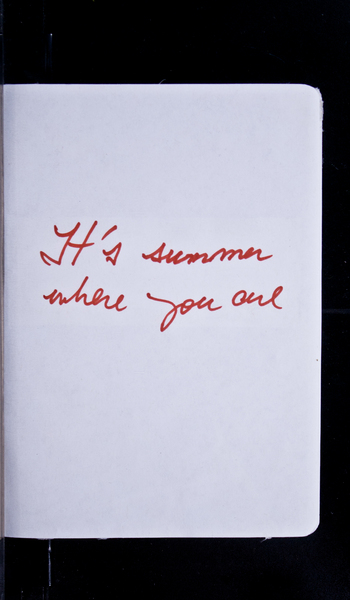 It's summer
where you are